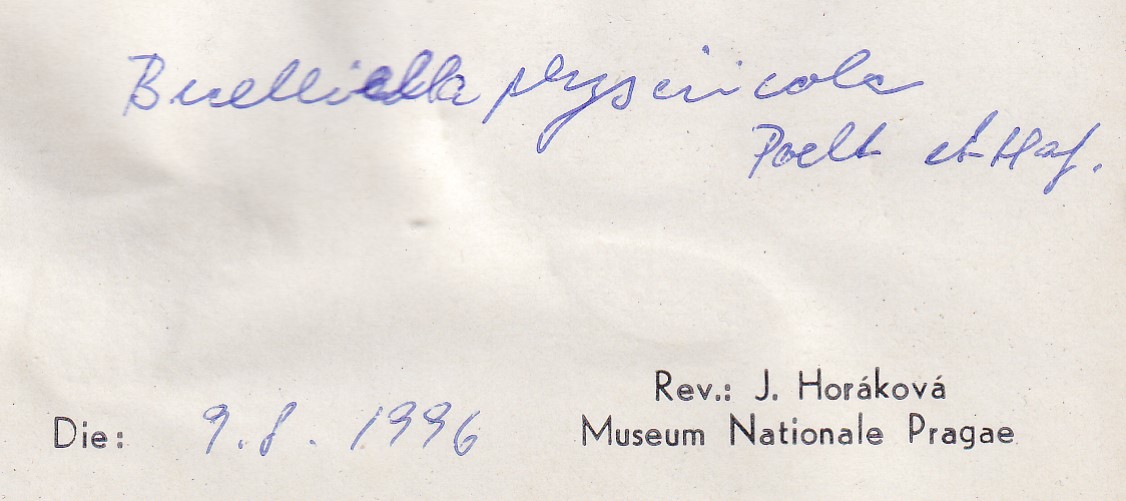 Buelliella physciicola
Poelt et Haf.
Rev.: J. Horáková
Die: 9.8. 1996 Museum Nationale Pragae